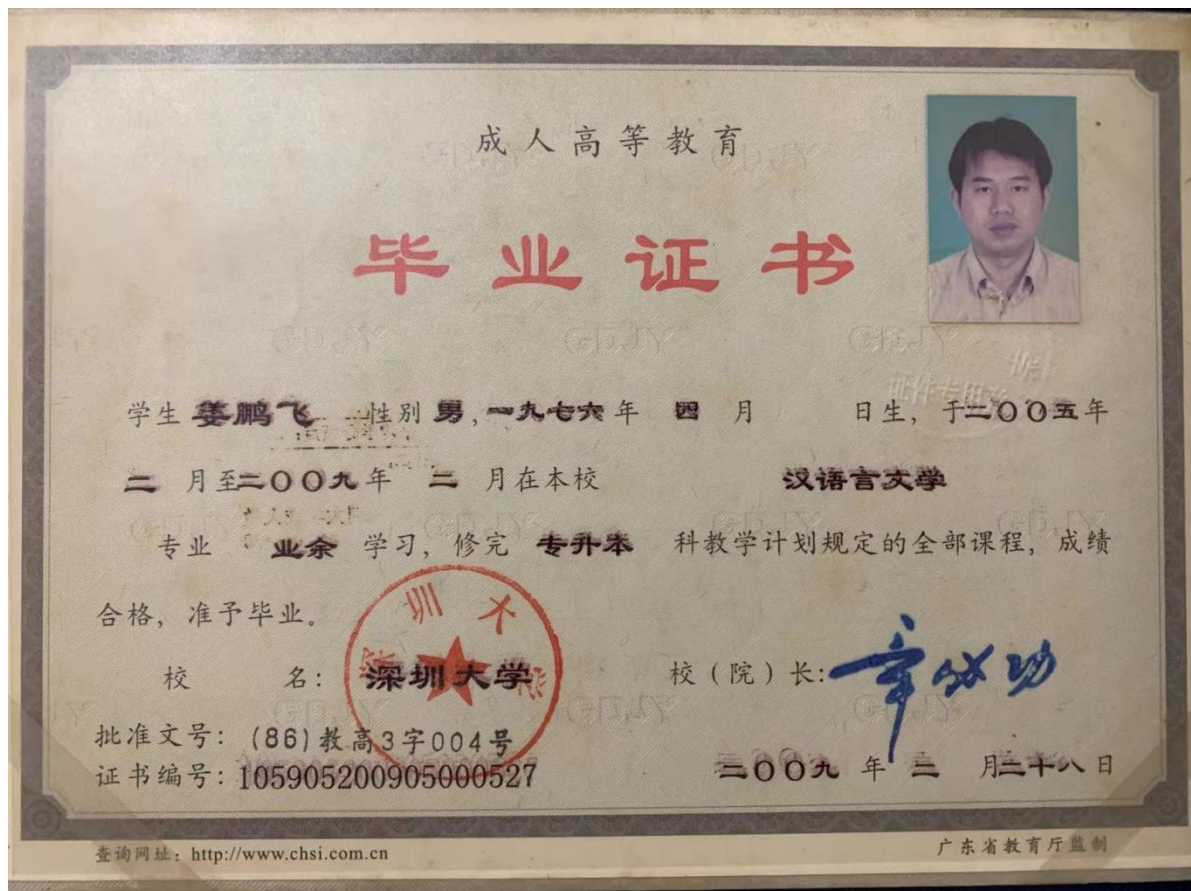 成人高等教育
毕业证书
学生 姜鹏飞 性别 男，一九七六年 四 月 日生，于二〇〇五年
二 月至二〇〇九年 二 月在本校 汉语言文学
专业 业余 学习，修完 专升本 科教学计划规定的全部课程，成绩
合格，准予毕业。
校 名：深圳大学 校（院）长：章必功
深圳大学
批准文号：(86)教高3字004号
证书编号：105905200905000527
二〇〇九 年 二 月二十八日
查询网址：http://www.chsi.com.cn
广东省教育厅监制
证件专用章